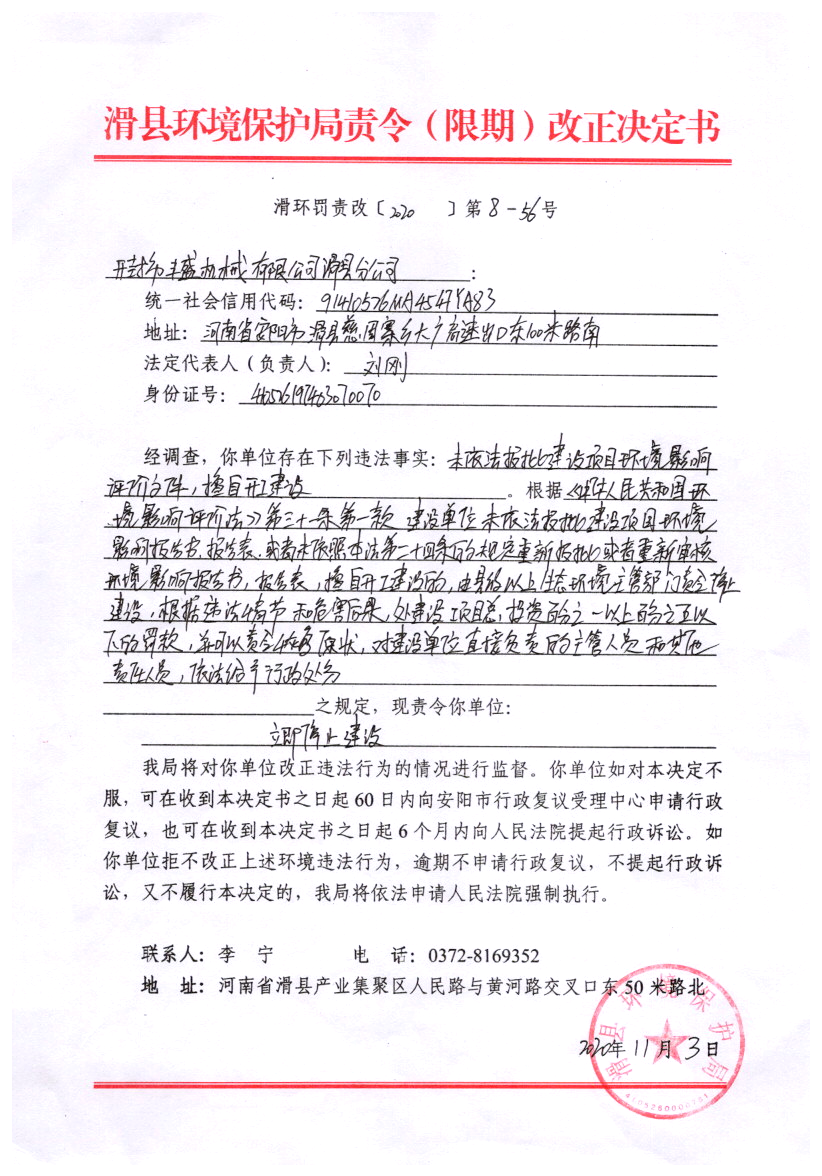 滑县环境保护局责令（限期）改正决定书
滑环罚责改〔2020 〕第8-56号
开封市丰盛机械有限公司滑县分公司：
统一社会信用代码：91410526MA4547YA83
地址：河南省安阳市滑县慈周寨乡大广高速出口东100米路南
法定代表人（负责人）：刘刚
身份证号：
经调查，你单位存在下列违法事实：未依法报批建设项目环境影响
评价文件，擅自开工建设。根据《中华人民共和国环
境影响评价法》第三十一条第一款 建设单位未依法报批建设项目环境
影响报告书、报告表，或者未依照本法第二十四条的规定重新报批或者重新审核
环境影响报告书，报告表，擅自开工建设的，由县级以上生态环境主管部门责令停止
建设，根据违法情节和危害后果，处建设项目总投资百分之一以上百分之五以
下的罚款，并可以责令恢复原状，对建设单位直接负责的主管人员和其他
责任人员，依法给予行政处分
之规定，现责令你单位：
立即停止建设
我局将对你单位改正违法行为的情况进行监督。你单位如对本决定不
服，可在收到本决定书之日起60日内向安阳市行政复议受理中心申请行政
复议，也可在收到本决定书之日起6个月内向人民法院提起行政诉讼。如
你单位拒不改正上述环境违法行为，逾期不申请行政复议，不提起行政诉
讼，又不履行本决定的，我局将依法申请人民法院强制执行。
联系人：李 宁 电 话：0372-8169352
地 址：河南省滑县产业集聚区人民路与黄河路交叉口东50米路北
2020年11月3日
滑县环境保护局